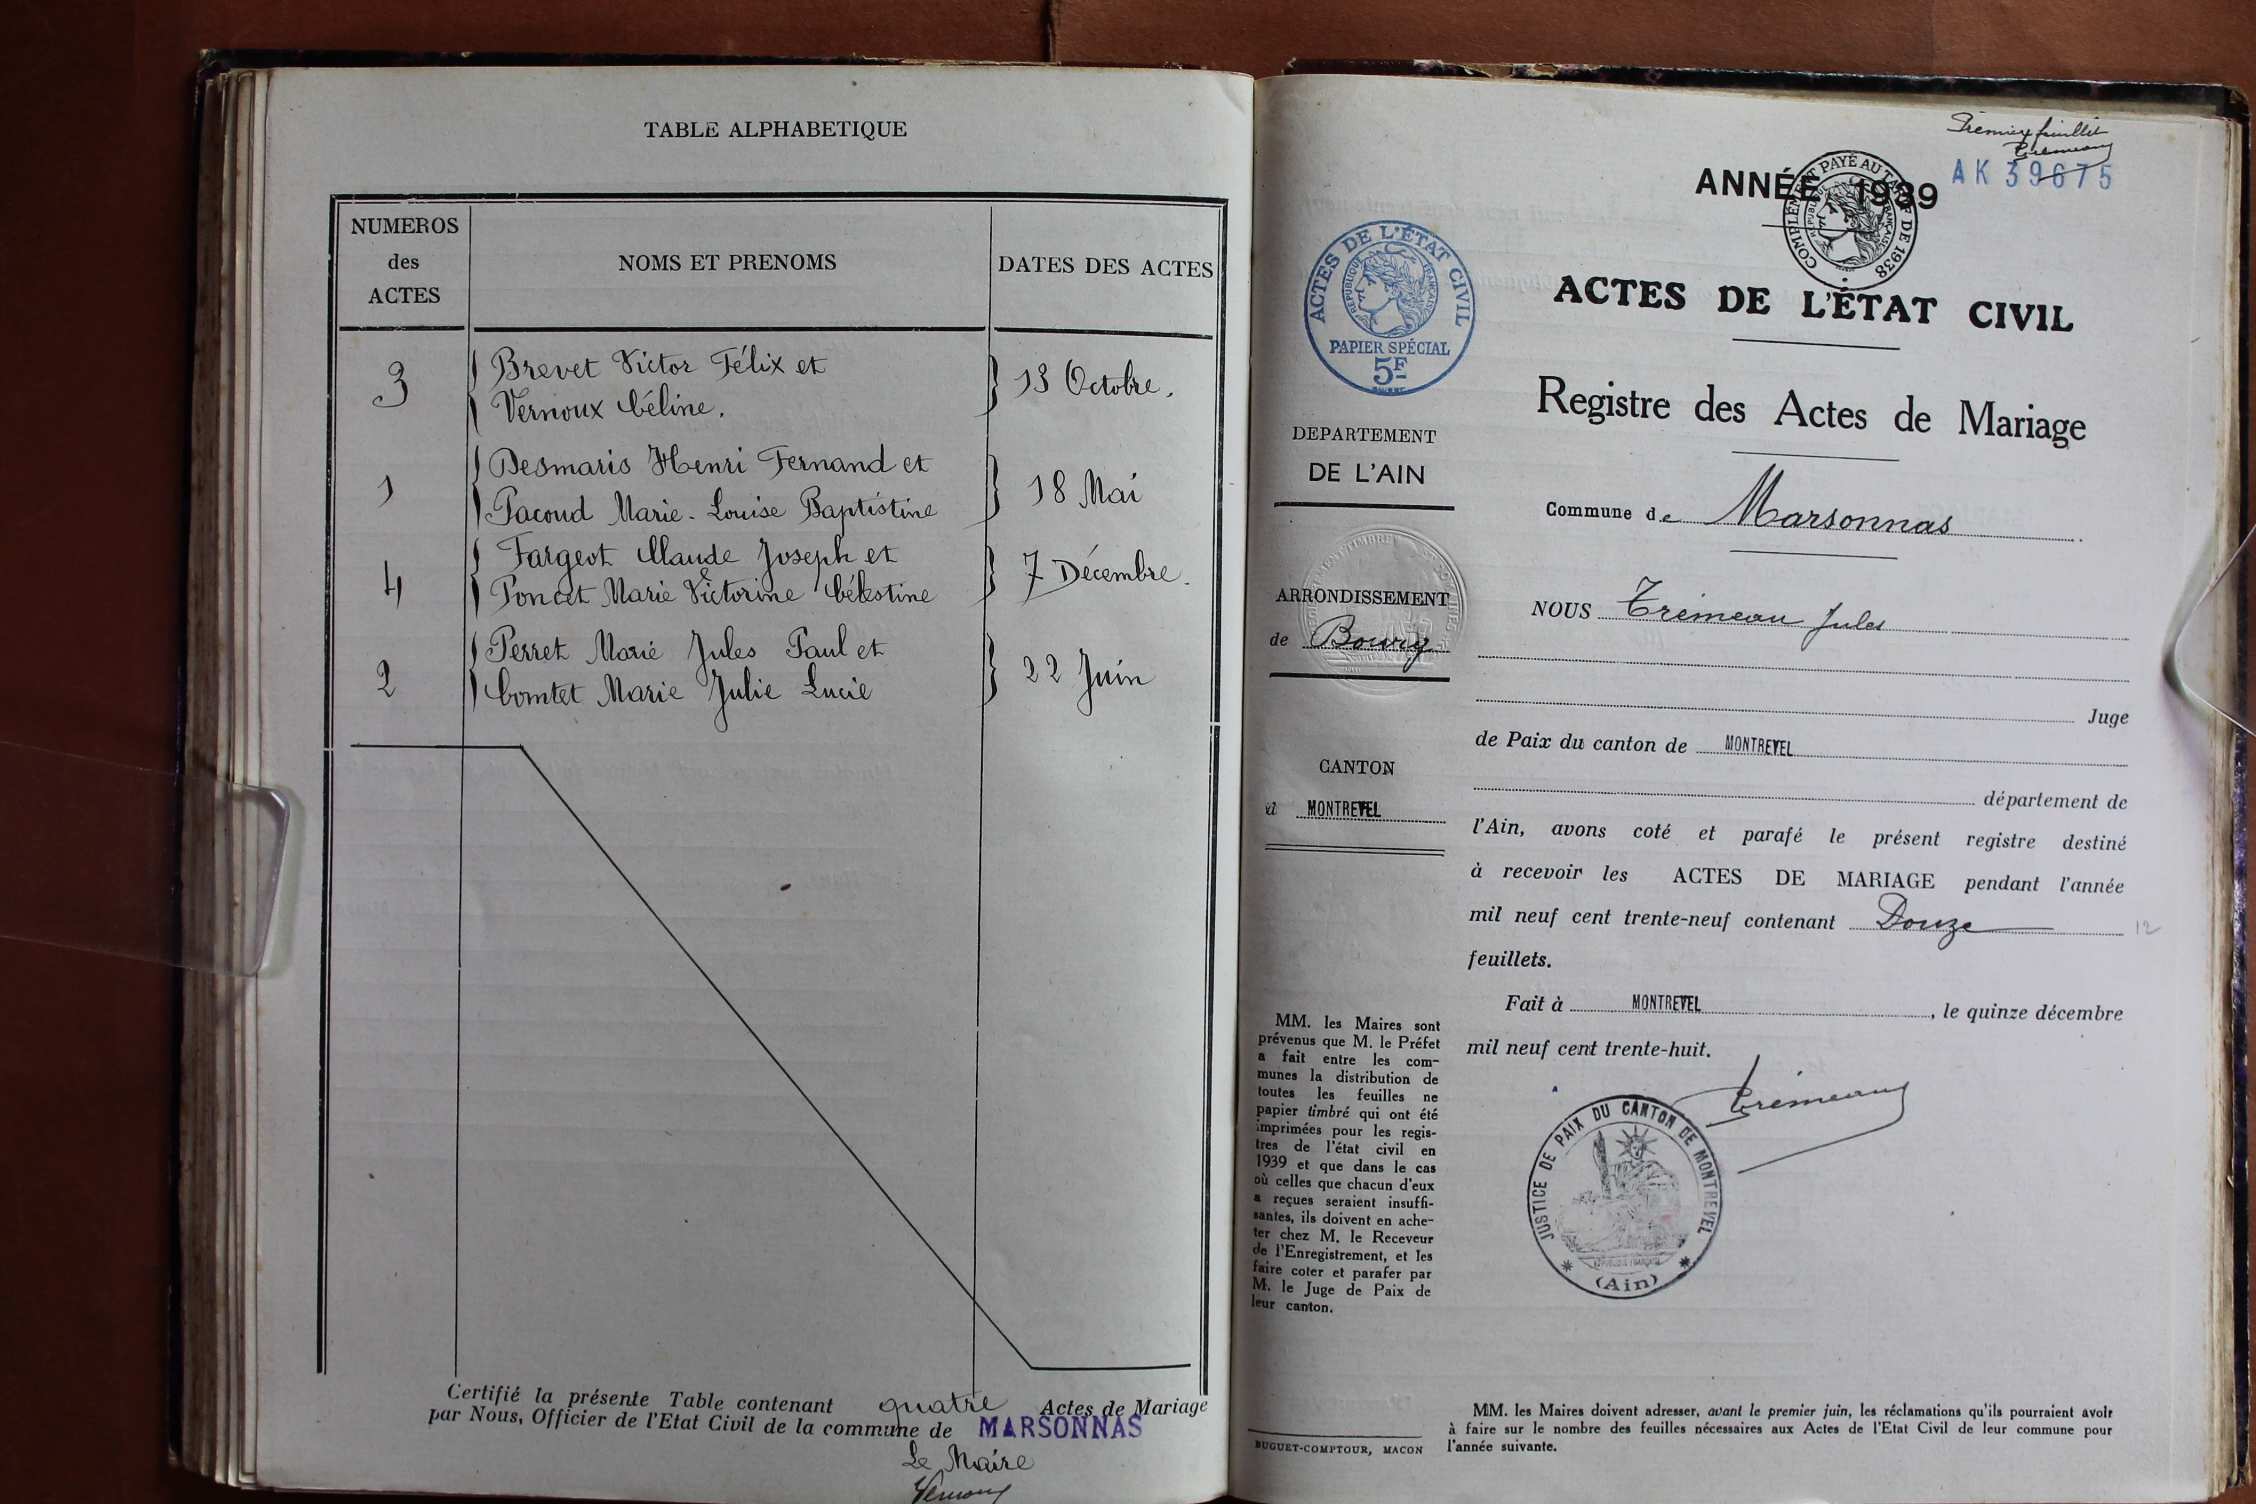 TABLE ALPHABETIQUE
NUMEROS
des
ACTES
NOMS ET PRENOMS
DATES DES ACTES
3
Brevet Victor Félix et
Vernoux Céline.
13 Octobre.
1
Desmaris Henri Fernand et
Pacoud Marie-Louise Baptistine
18 Mai
4
Fargeot Claude Joseph et
Poncet Marie Victorine Célestine
7 Décembre.
2
Perret Marie Jules Paul et
Comtet Marie Julie Lucie
22 Juin
Certifié la présente Table contenant quatre Actes de Mariage
par Nous, Officier de l'Etat Civil de la commune de MARSONNAS
Le Maire
Premier feuillet
Trémeau
AK 39675
ANNÉE 1939
COMPLÉMENT PAYÉ AU TARIF DE 1938
RÉPUBLIQUE FRANÇAISE
ACTES DE L'ÉTAT CIVIL
RÉPUBLIQUE FRANÇAISE
PAPIER SPÉCIAL
5F
ACTES DE L'ÉTAT CIVIL
Registre des Actes de Mariage
DEPARTEMENT
DE L'AIN
Commune de Marsonnas
ARRONDISSEMENT
de Bourg
NOUS Trémeau Jules
Juge
de Paix du canton de MONTREVEL
CANTON
d MONTREVEL
département de
l'Ain, avons coté et parafé le présent registre destiné
à recevoir les ACTES DE MARIAGE pendant l'année
mil neuf cent trente-neuf contenant Douze 12
feuillets.
Fait à MONTREVEL, le quinze décembre
mil neuf cent trente-huit.
Trémeau
JUSTICE DE PAIX DU CANTON DE MONTREVEL
(Ain)
MM. les Maires sont
prévenus que M. le Préfet
a fait entre les com-
munes la distribution de
toutes les feuilles ne
papier timbré qui ont été
imprimées pour les regis-
tres de l'état civil en
1939 et que dans le cas
où celles que chacun d'eux
a reçues seraient insuffi-
santes, ils doivent en ache-
ter chez M. le Receveur
de l'Enregistrement, et les
faire coter et parafer par
M. le Juge de Paix de
leur canton.
BUGUET-COMPTOUR, MACON
MM. les Maires doivent adresser, avant le premier juin, les réclamations qu'ils pourraient avoir
à faire sur le nombre des feuilles nécessaires aux Actes de l'Etat Civil de leur commune pour
l'année suivante.